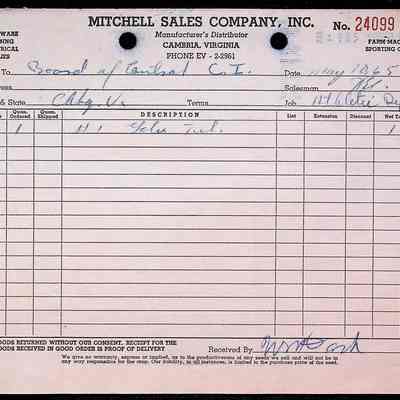 MITCHELL SALES COMPANY, INC.
No. 24099
WARE
Manufacturer's Distributor
CAMBRIA, VIRGINIA
PHONE EV - 2-2961
FARM MAC
SPORTING G
To Board of Control C. I. Date May 1965
Salesman
& State Cbg. Va. Terms Job Athletic De
Quan. Ordered Quan. Shipped DESCRIPTION List Extension Discount Net
1 #1
OODS RETURNED WITHOUT OUR CONSENT. RECEIPT FOR THE
OODS RECEIVED IN GOOD ORDER IS PROOF OF DELIVERY
Received By
We give no warranty, express or implied, as to the productiveness of any seeds we sell and will not be in
any way responsible for the crop. Our liability, in all instances, is limited to the purchase price of the seed.